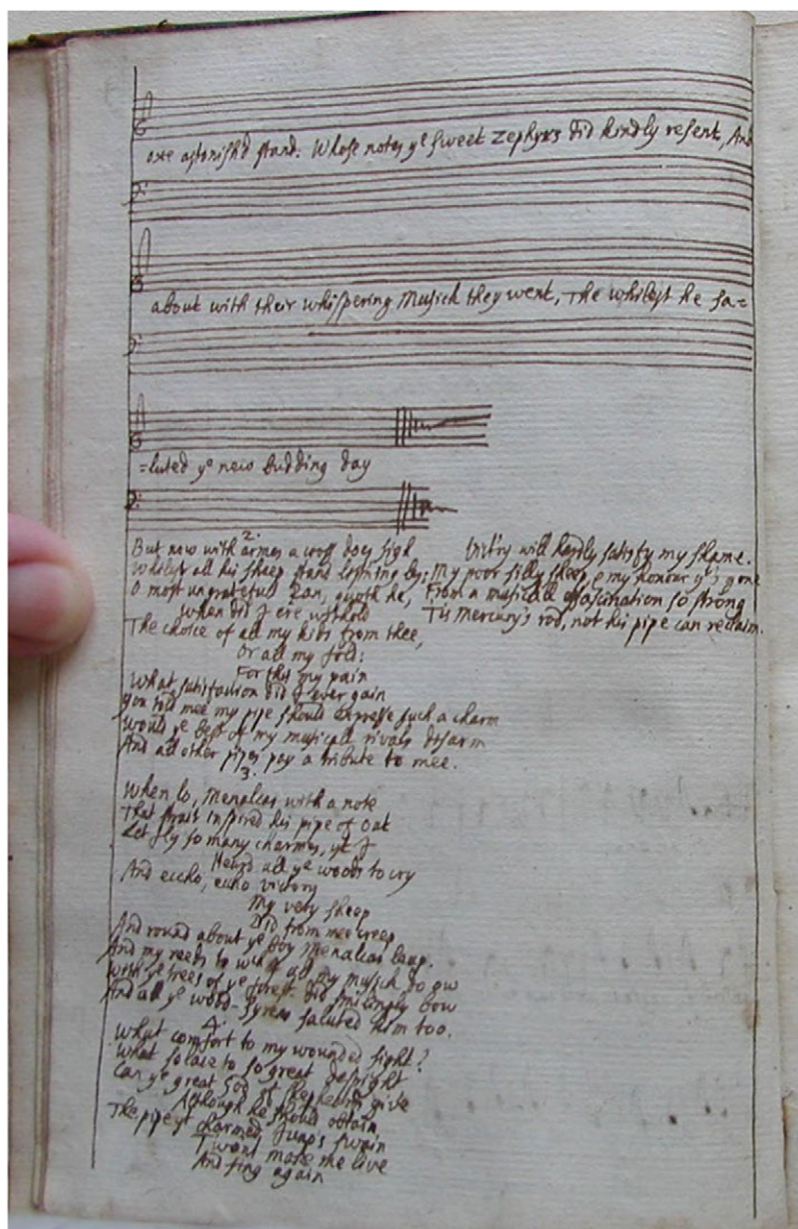 are astonish'd stand. Whose notes ye sweet Zephyrs did kindly resent, And
about with their whispering Musick they went, The whilest he sa=
=luted ye new budding day
2.
But now with armes a cross does sigh
Whilest all his sheep stand listning by;
O most ungratefull Pan, quoth he,
When did I ere withold
The choice of all my kids from thee,
Or all my fold:
For this my pain
What satisfaction did I ever gain
You told mee my pipe should expresse such a charm
Would ye best of my musicall rivals disarm
And all other pipes pay a tribute to mee.
3.
When lo, Menalcas with a note
That strait inspired his pipe of Oat
Let fly so many charmes, yt I
Heard all ye woods to cry
And eccho, echo victory
My very sheep
Did from mee creep
And round about ye boy Menalcas leap.
And my reeds to all my musick do ow
With ye trees of ye forest did smilingly bow
And all ye wood-Syrens saluted him too.
4.
What comfort to my wounded sight?
What solace to so great despight
Can ye great God of shepherds give
Although he should obtain
The pipe yt charmed Juno's swain
Twont make me live
And sing again
Vict'ry will hardly satisfy my shame.
My poor silly sheep, & my honour yt's gone
From a musicall fascination so strong
Tis Mercury's rod, not his pipe can reclaim.